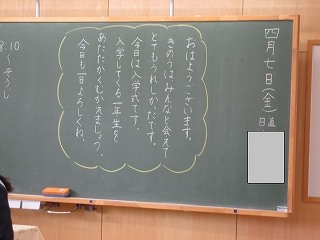 四月七日(金)
日直
おはようございます。
きのうはみんなと会えて
とてもうれしかったです。
今日は入学式です。
入学してくる一年生を
あたたかくむかえましょう。
今日も一日よろしくね。
10〜そうじ